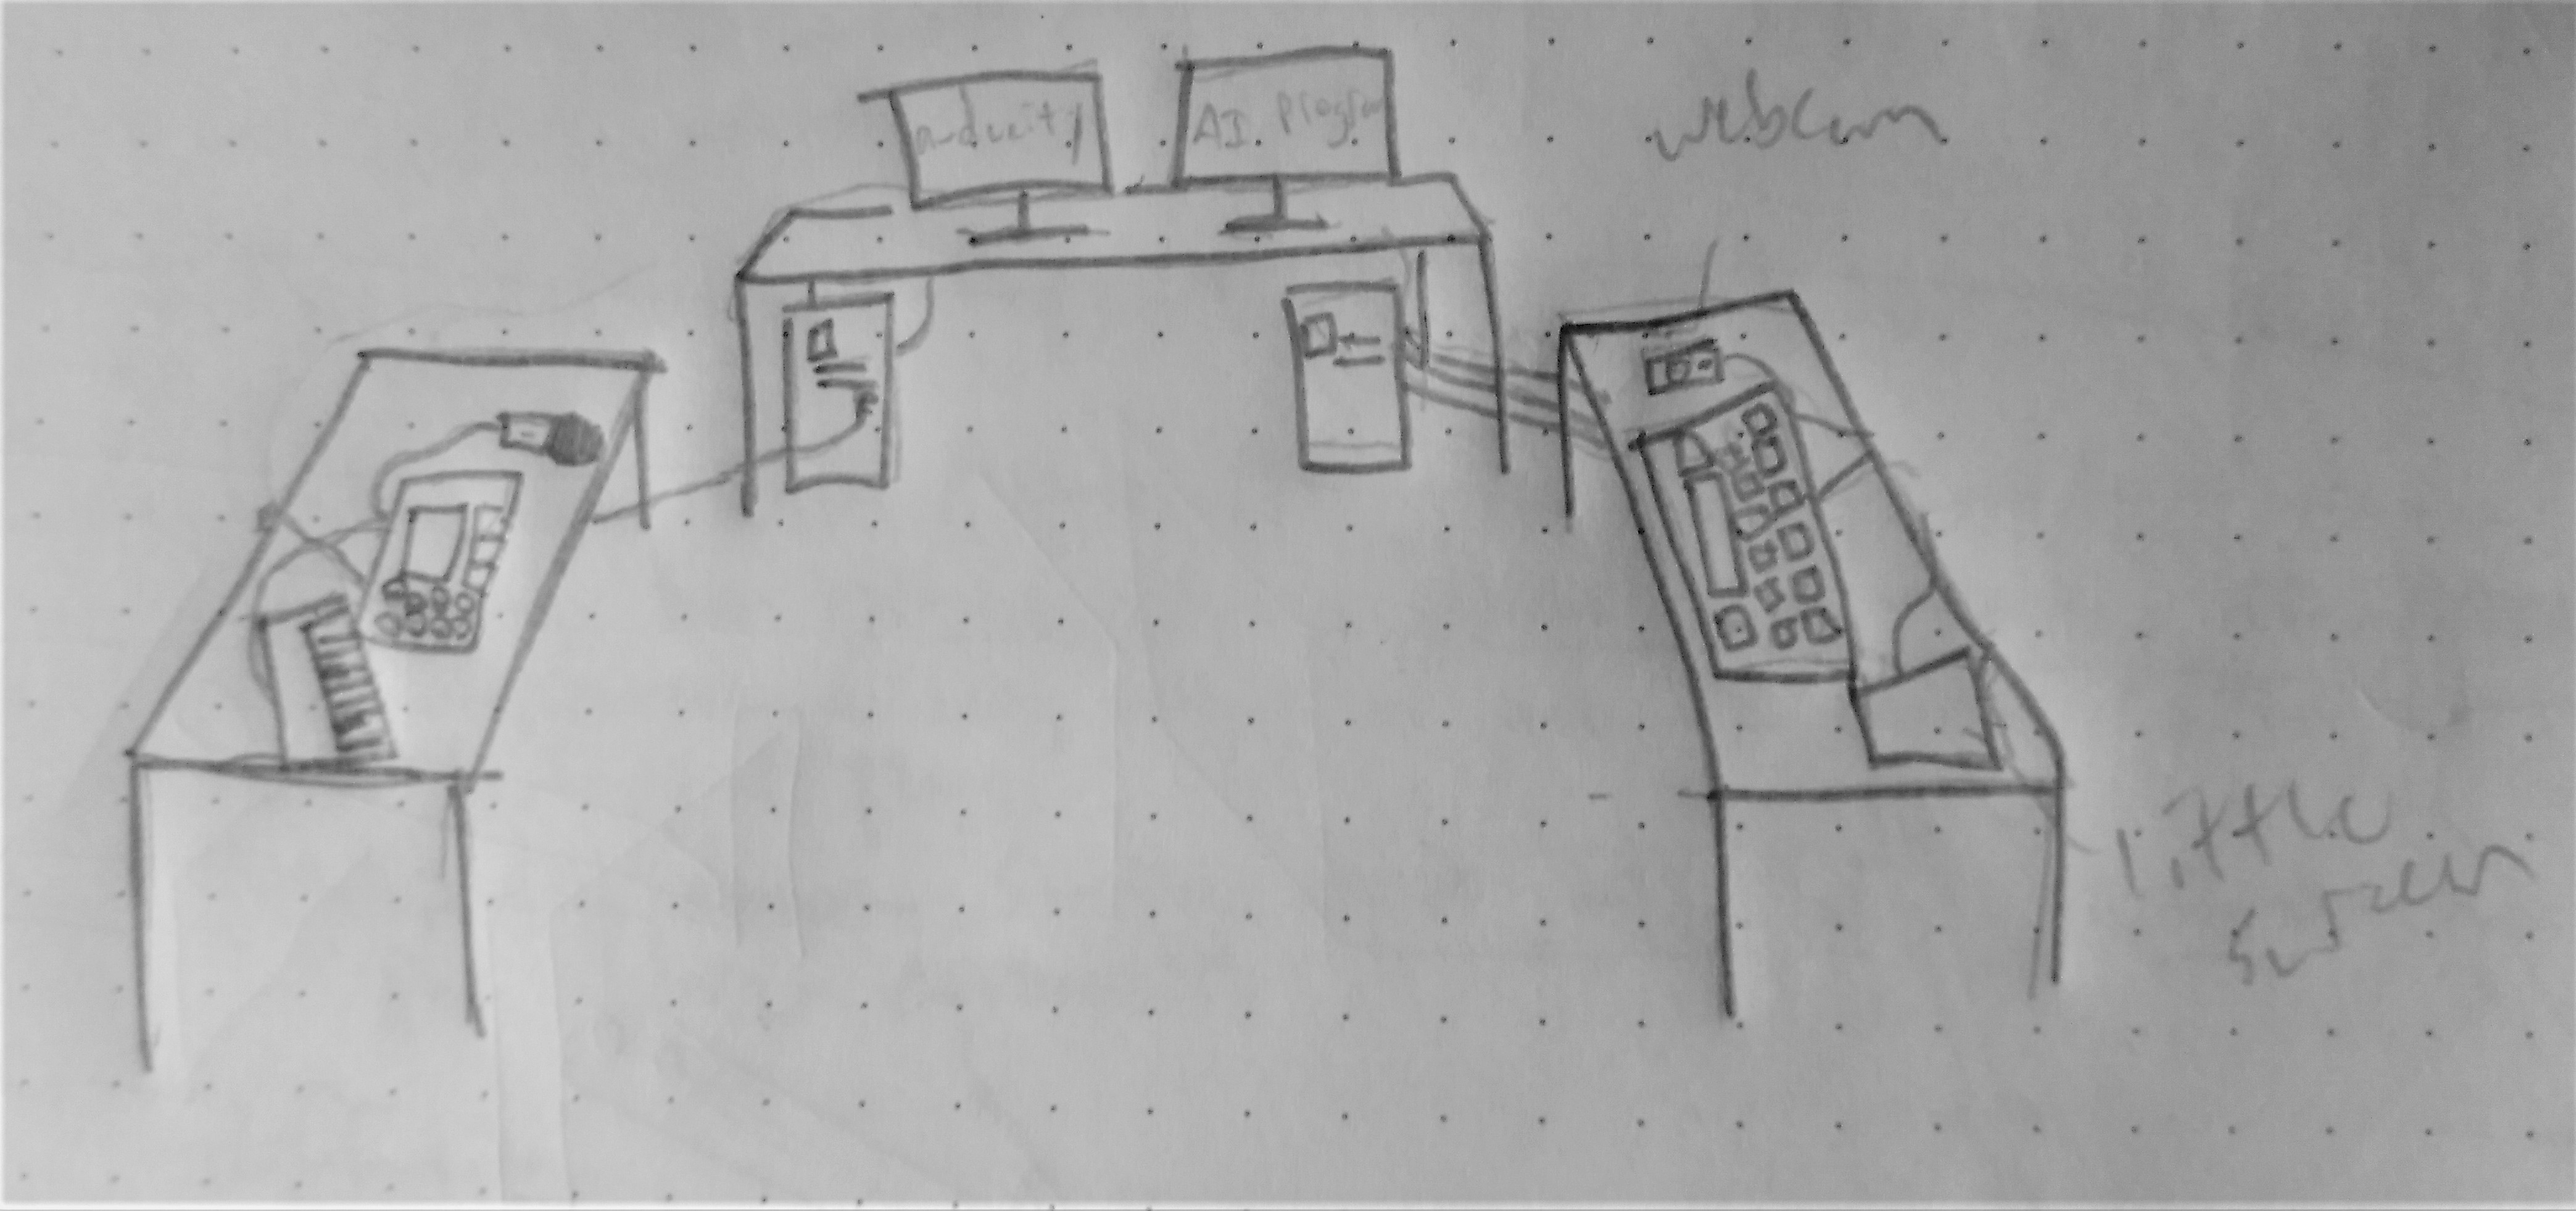 audacity
AI Program
webcam
little
screen